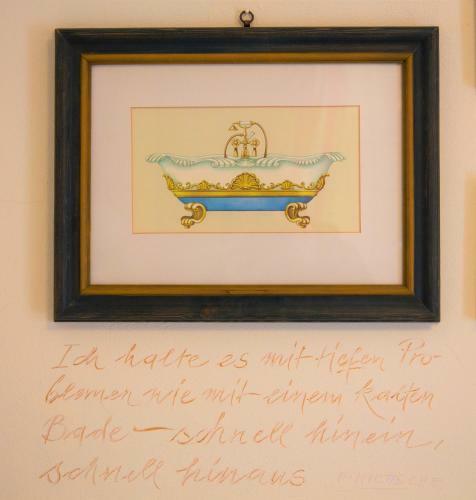 Ich halte es mit tiefen Pro-
blemen wie mit einem kalten
Bade — schnell hinein,
schnell hinaus F. NIETZSCHE